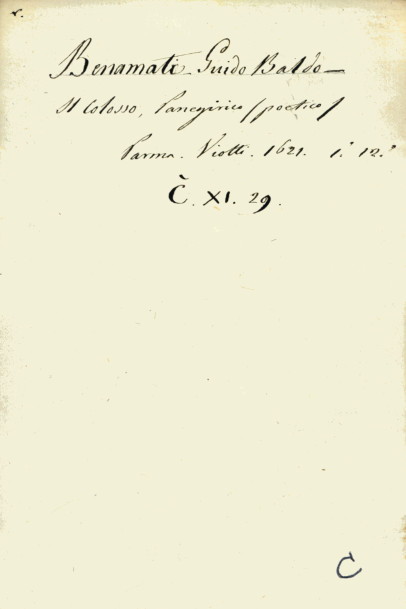 r.
Benamati Guido Baldo—
Il Colosso, Panegirico (poetico)
Parma. Viotti. 1621. i.° 12.°
Č. XI. 29.
C